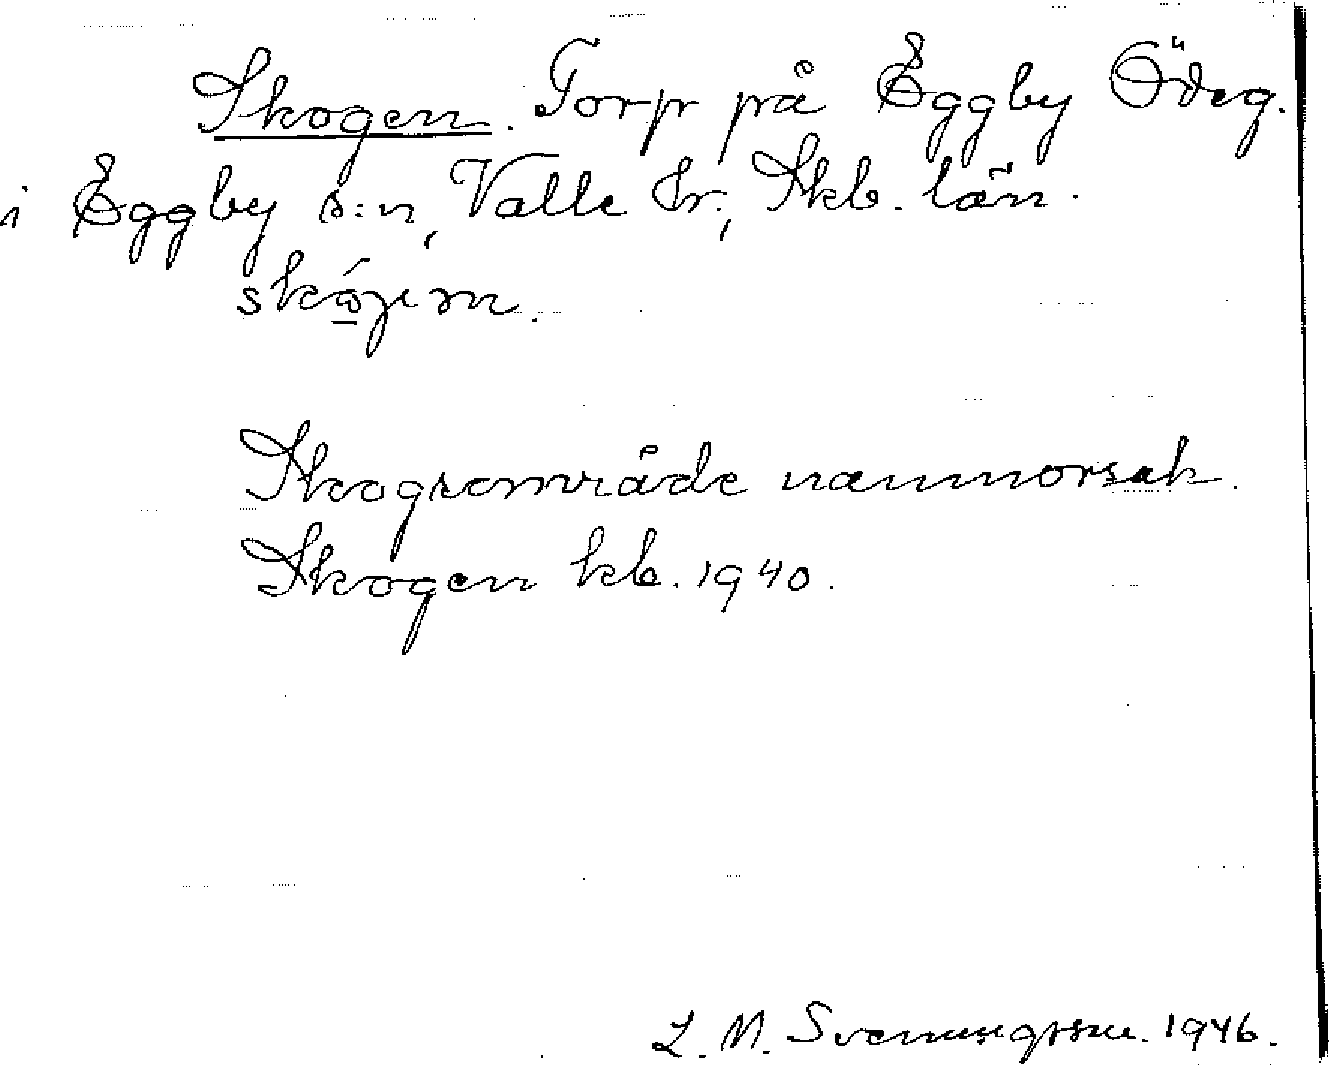 Skogen. Torp på Eggby Ödeg.
i Eggby s:n, Valle hr., Skb. län.
skójen.
Skogsområde namnorsak.
Skogen kb. 1940.
L. M. Svenungsson. 1946.